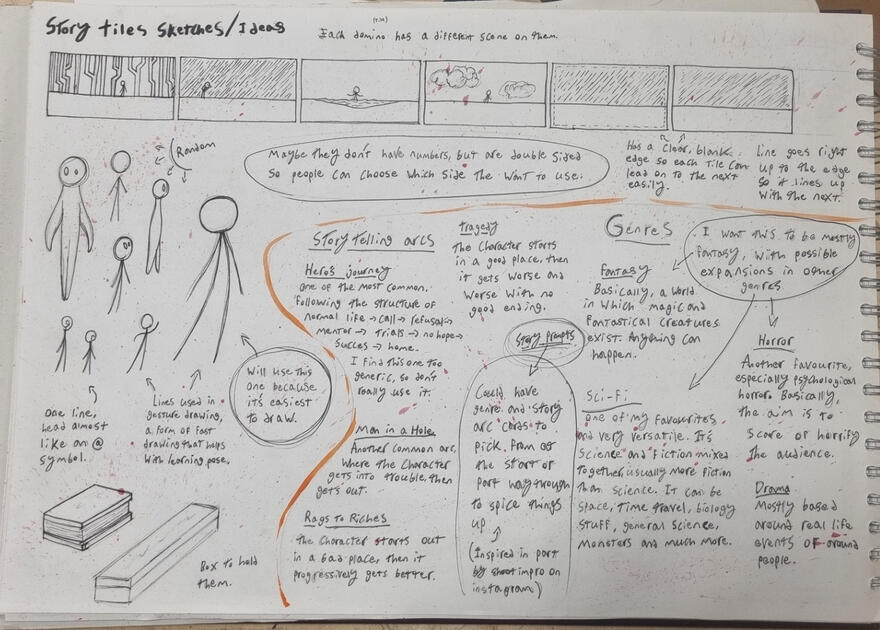 Story tiles Sketches/Ideas
Each domino has a different scene on them.
Maybe they don't have numbers, but are double sided
So people can choose which side the want to use.
Has a clear, blank
edge so each tile can
lead on to the next
easily.
Line goes right
up to the edge
so it lines up
with the next.
Random
Will use this
one because
it's easiest
to draw.
One line,
head almost
like an @
symbol.
Lines used in
gesture drawing,
a form of fast
drawing that helps
with learning pose.
Box to hold
them.
Story telling arcs
Hero's journey
One of the most common.
Following the structure of
normal life → call → refusal →
mentor → trials → no hope →
succes → home.
I find this one too
generic, so don't
really use it.
Man in a Hole
Another common arc,
where the character
gets into trouble, then
gets out.
Rags to Riches
the character starts out
in a bad place, then it
progressively gets better.
tragedy
the character starts
in a good place, then
it gets worse and
worse with no
good ending.
Story Prompts
Could have
genre and story
arc cards to
pick from at
the start or
part way through
to spice things
up
(Inspired in part
by impro on
instagram)
Genres
I want this to be mostly
fantasy, with possible
expansions in other
genres
Fantasy
Basically, a world
in which magic and
fantastical creatures
exist. Anything can
happen.
Sci-Fi
One of my favourites
and very versatile. It's
science and fiction mixed
together, usually more fiction
than science. It can be
space, time travel, biology
stuff, general science,
monsters and much more.
Horror
Another favourite,
especially psychological
horror. Basically,
the aim is to
scare or horrify
the audience.
Drama
Mostly based
around real life
events or around
people.